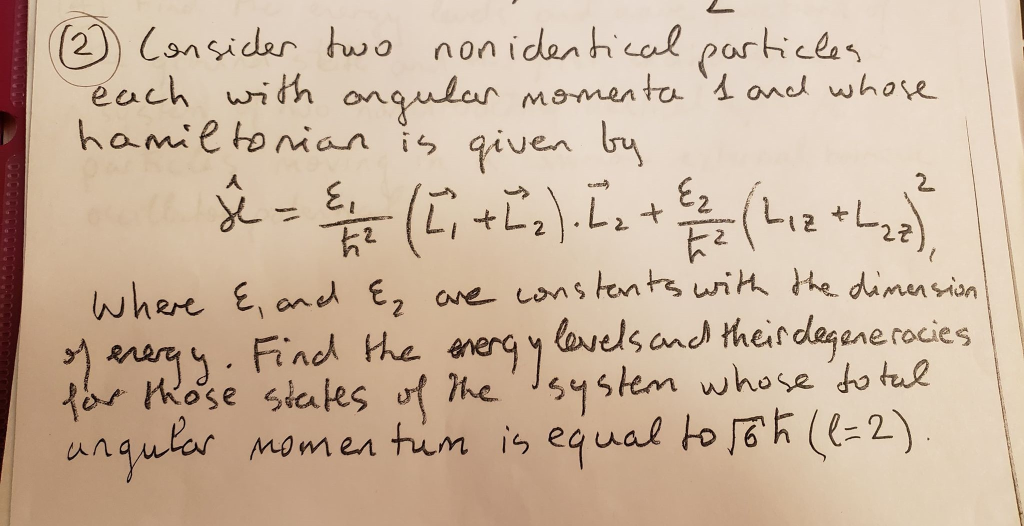 (2) Consider two nonidentical particles
each with angular momenta 1 and whose
hamiltonian is given by
Ĥ = ε₁/ħ² (L⃗₁ + L⃗₂) · L⃗₂ + ε₂/ħ² (L₁z + L₂z)²,
Where ε₁ and ε₂ are constants with the dimension
of energy. Find the energy levels and their degeneracies
for those states of the system whose total
angular momentum is equal to √6 ħ (l=2).